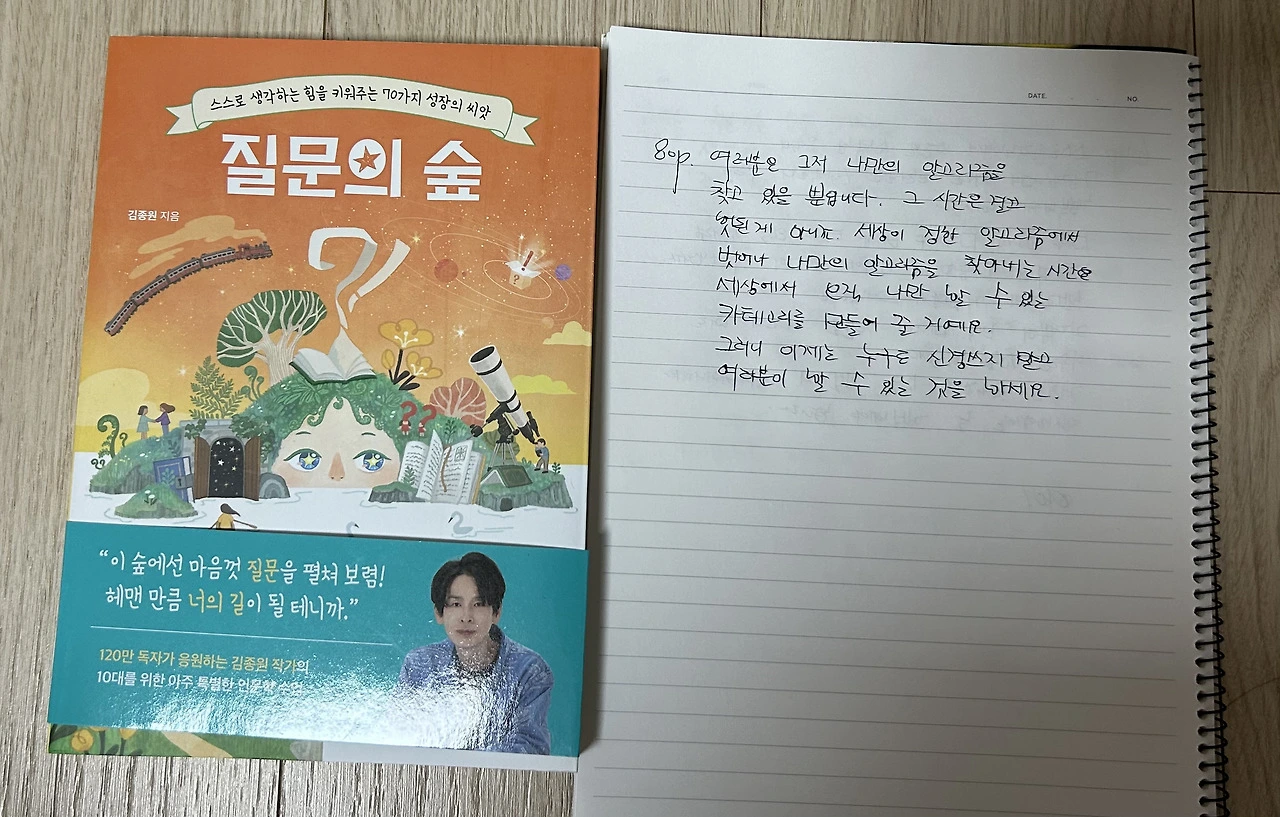 스스로 생각하는 힘을 키워주는 70가지 성장의 씨앗
질문의 숲
김종원 지음
“이 숲에선 마음껏 질문을 펼쳐 보렴!
헤맨 만큼 너의 길이 될 테니까.”
120만 독자가 응원하는 김종원 작가의
10대를 위한 아주 특별한 인문학 수업
DATE. NO.
80p. 여러분은 그저 나만의 알고리즘을
찾고 있을 뿐입니다. 그 시간은 결코
헛된 게 아니죠. 세상이 정한 알고리즘에서
벗어나 나만의 알고리즘을 찾아내는 시간은
세상에서 오직 나만 할 수 있는
카테고리를 만들어 줄 거예요.
그러니 이제는 누구도 신경쓰지 말고
여러분이 할 수 있는 것을 하세요.